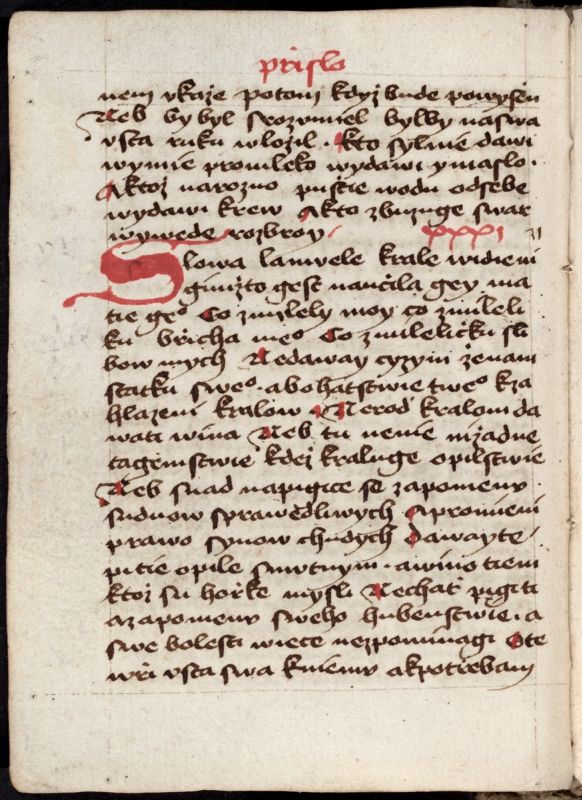 przislo
nem vkaze potom kdyz bude powyssen
Neb by byl srozumiel bylby na swa
vsta ruku wlozil · kto sylnie dawi
wymie promleko wydawi ymaslo ·
Aktoz narozno pustie wodu odsebe
wydawi krew Akto zbuzuge swar
wywede rozbroy · xxxi
Slowa lamuele krale widieni
gimizto gest naucila gey ma
tie geo Co zmylely moy co zmileli
ku brzicha meo Co zmileliczku sli
bow mych Nedaway cyzym zenam
statku sweo · abohatstwie tweo kza
hlazeni kralow Nerod kralom da
wati wina Neb tu nenie nizadne
tagemstwie kdez kraluge opilstwie
Neb snad napigice se zapomenu
suduow sprawedliwych Apromieni
prawo synow chudych dawayte
pitie opile smutnym · awino tiem
ktoz su horzke mysli Nechat pigi ti
azapomenu sweho hubenstwie · a
swe bolesti wiece nezpominagi Ote
wrzi vsta swa kniemu akpotrzebam